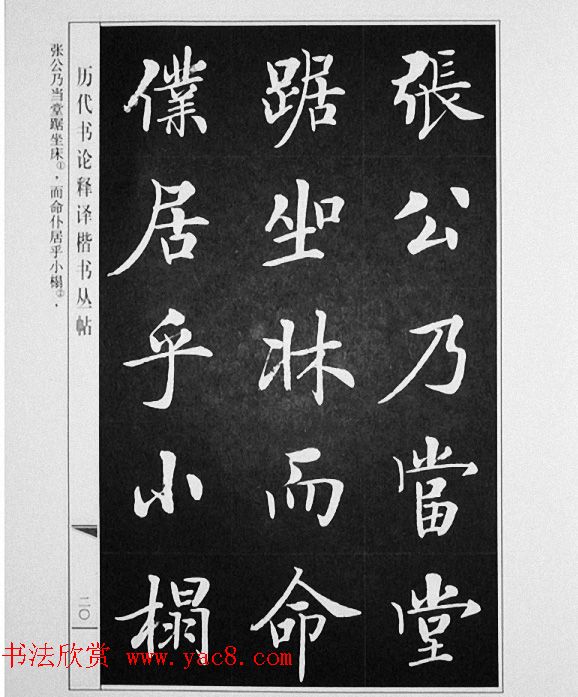 張公乃當堂
踞坐牀而命
僕居乎小榻
历代书论释译楷书丛帖
二〇
张公乃当堂踞坐床①，而命仆居乎小榻②，
书法欣赏 www.yac8.com